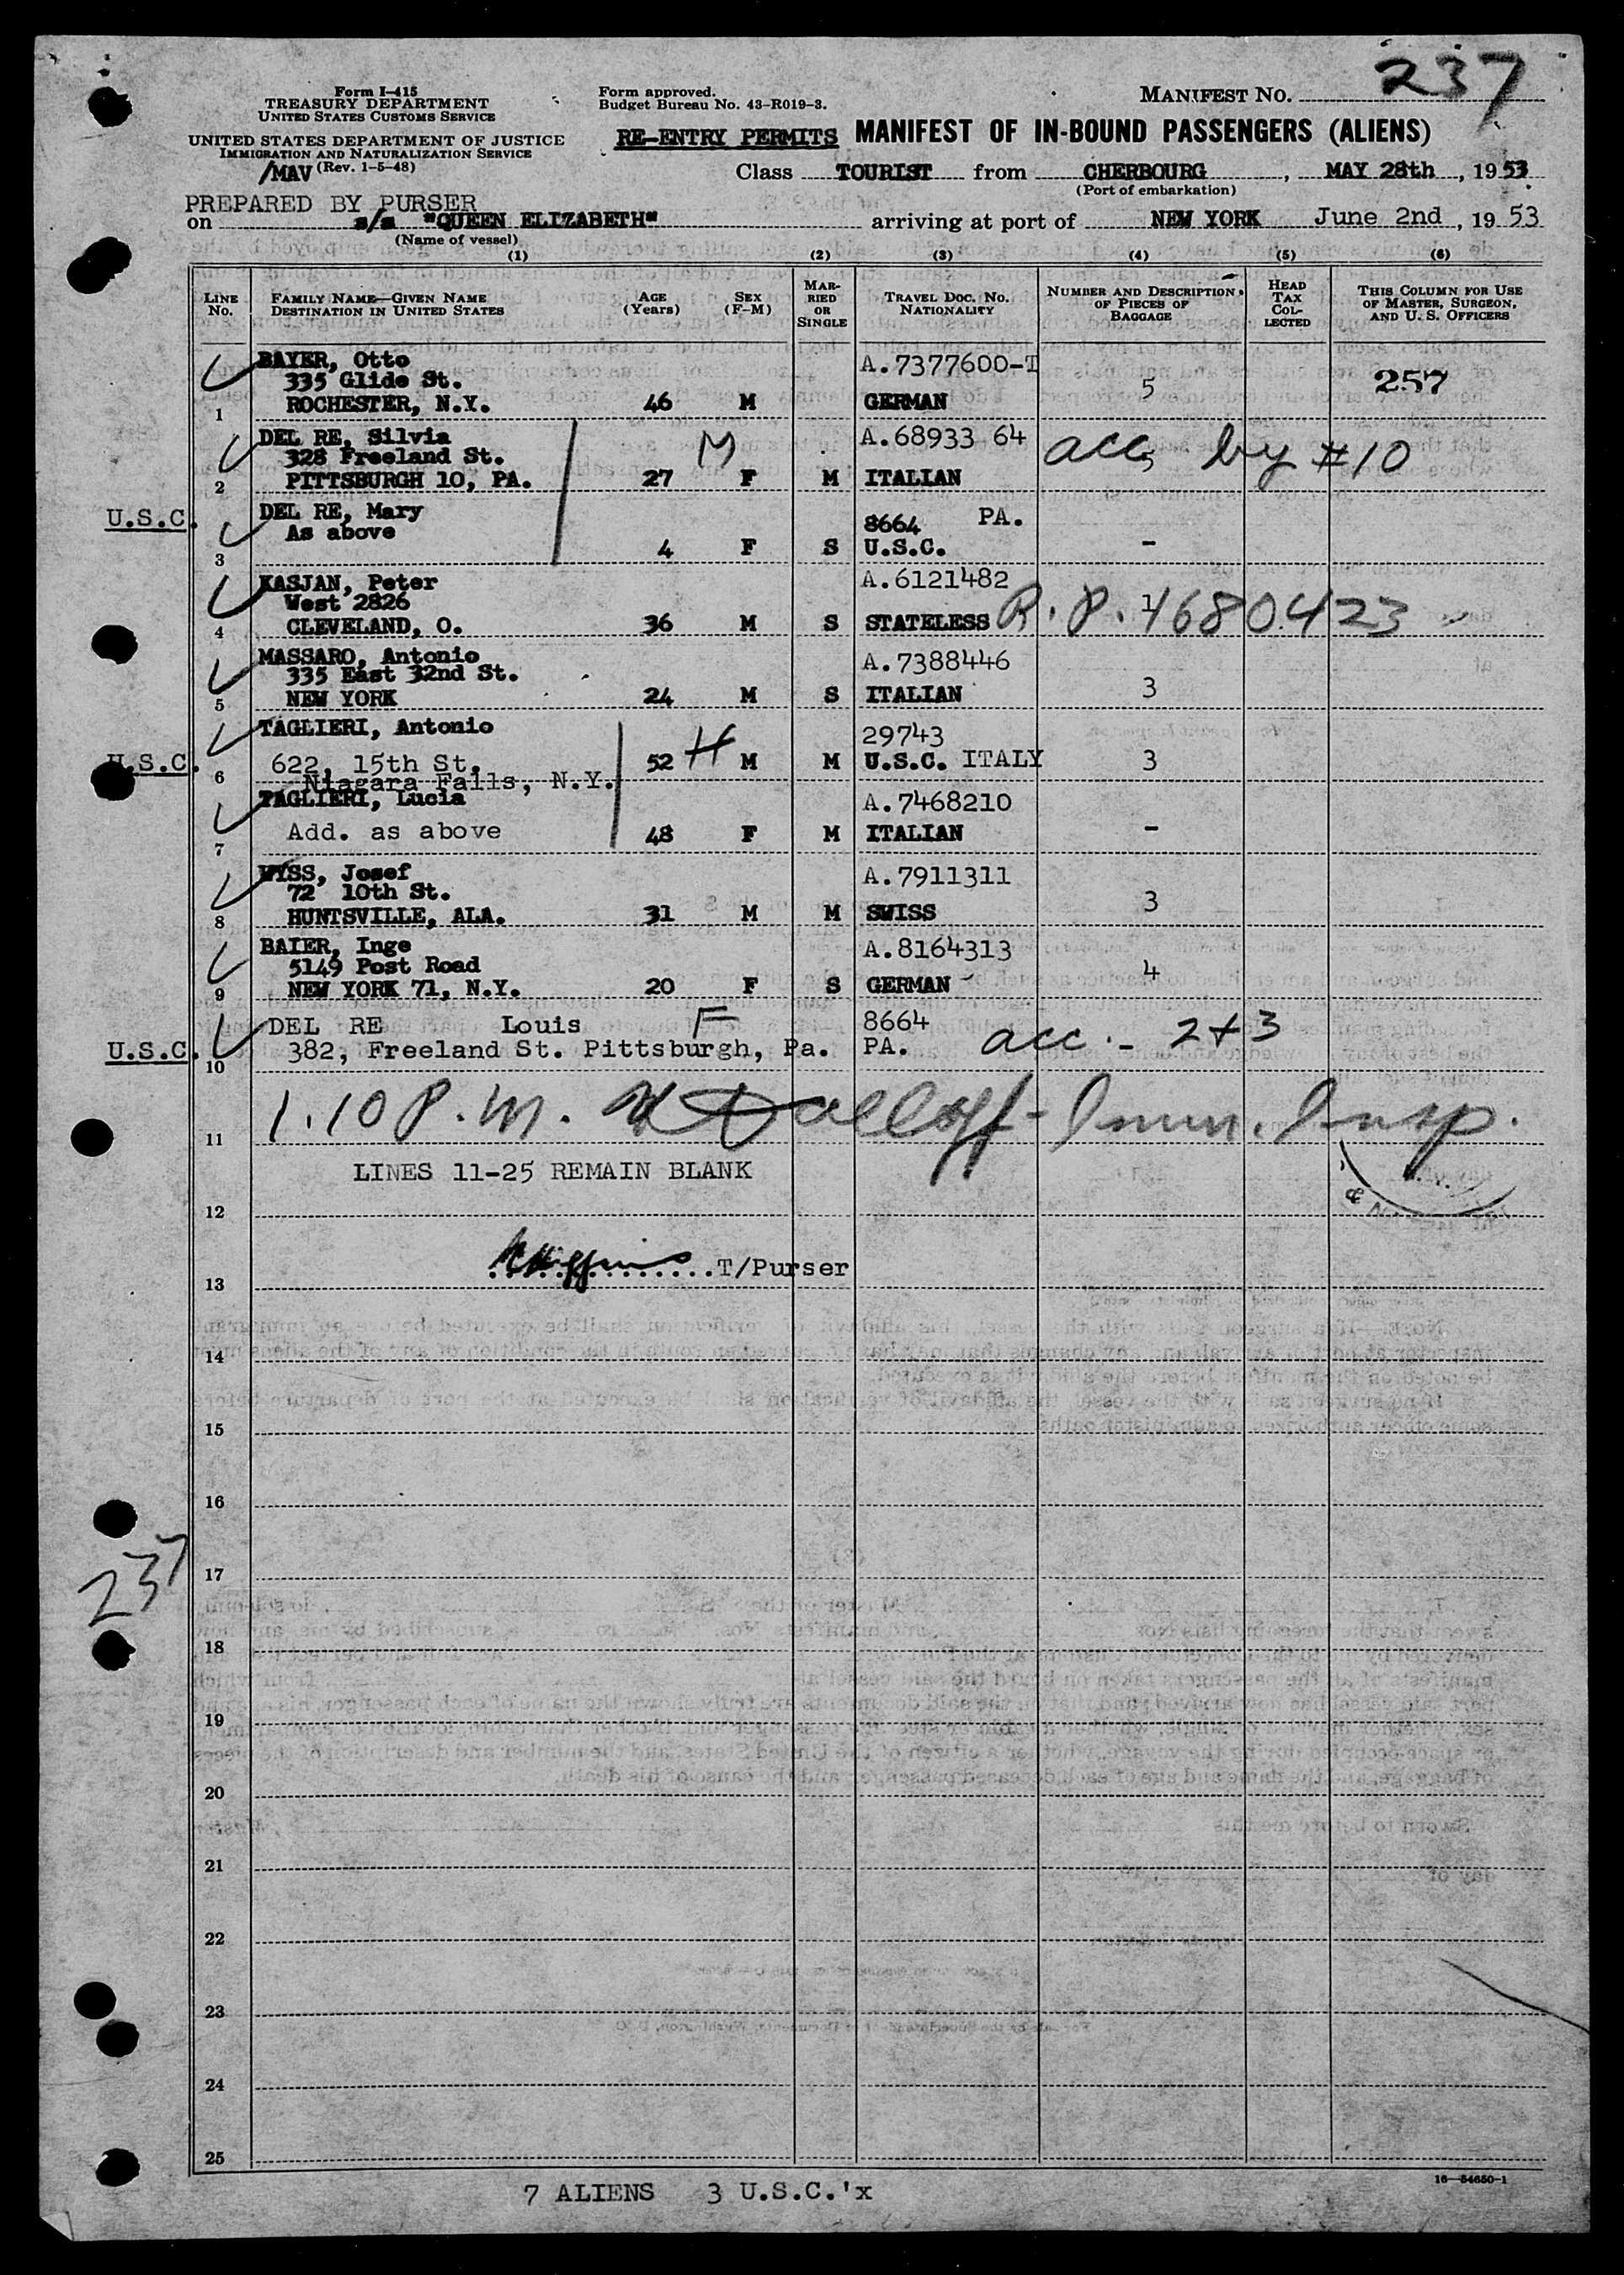 237
Form I-415
TREASURY DEPARTMENT
UNITED STATES CUSTOMS SERVICE
UNITED STATES DEPARTMENT OF JUSTICE
IMMIGRATION AND NATURALIZATION SERVICE
/MAV (Rev. 1-5-48)
Form approved.
Budget Bureau No. 43-R019-3.
MANIFEST NO.
RE-ENTRY PERMITS MANIFEST OF IN-BOUND PASSENGERS (ALIENS)
Class TOURIST from CHERBOURG, MAY 28th, 1953
(Port of embarkation)
PREPARED BY PURSER
on s/s "QUEEN ELIZABETH" arriving at port of NEW YORK June 2nd, 1953
(Name of vessel)
(1) (2) (3) (4) (5) (6)
LINE No.
FAMILY NAME—GIVEN NAME
DESTINATION IN UNITED STATES
AGE (Years)
SEX (F-M)
MARRIED OR SINGLE
TRAVEL DOC. NO. NATIONALITY
NUMBER AND DESCRIPTION OF PIECES OF BAGGAGE
HEAD TAX COLLECTED
THIS COLUMN FOR USE OF MASTER, SURGEON, AND U. S. OFFICERS
BAYER, Otto A.7377600-T
335 Glide St. 5 257
1 ROCHESTER, N.Y. 46 M GERMAN
DEL RE, Silvia M A.68933 64
328 Freeland St. acc by #10
2 PITTSBURGH 10, PA. 27 F M ITALIAN
U.S.C. DEL RE, Mary 8664 PA.
As above
3 4 F S U.S.C. -
KASJAN, Peter A.6121482
West 2826 R.P. 1680423
4 CLEVELAND, O. 36 M S STATELESS
MASSARO, Antonio A.7388446
335 East 32nd St.
5 NEW YORK 24 M S ITALIAN 3
TAGLIERI, Antonio 29743
U.S.C. 6 622, 15th St. 52 H M M U.S.C. ITALY 3
Niagara Falls, N.Y.
TAGLIERI, Lucia A.7468210
7 Add. as above 48 F M ITALIAN -
WYSS, Josef A.7911311
72 10th St.
8 HUNTSVILLE, ALA. 31 M M SWISS 3
BAIER, Inge A.8164313
5149 Post Road 4
9 NEW YORK 71, N.Y. 20 F S GERMAN
DEL RE Louis F 8664
U.S.C. 382, Freeland St. Pittsburgh, Pa. PA. acc. - 2+3
10
1.10 P.M. Imm. Insp.
11
LINES 11-25 REMAIN BLANK
12
T/Purser
13
14
15
16
237
17
18
19
20
21
22
23
24
25
16—54650-1
7 ALIENS 3 U.S.C.'x